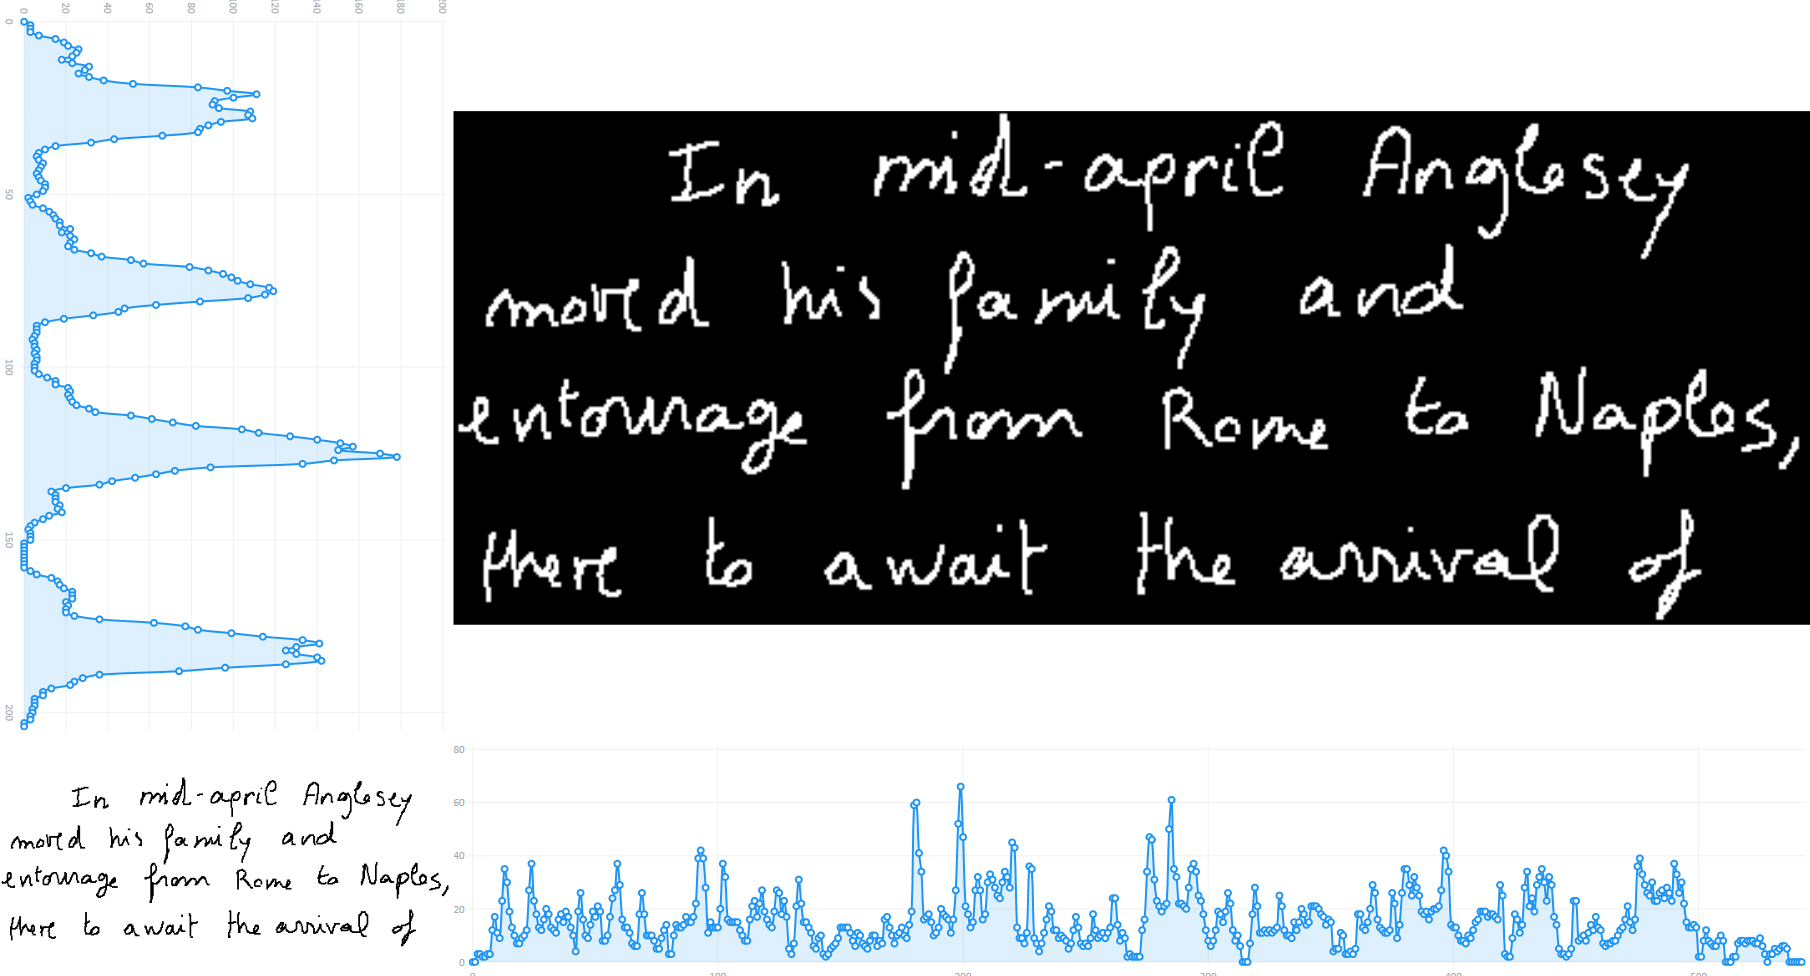 0 20 40 60 80 100 120 140 160 180 200
0
50
100
150
200
In mid-april Anglesey
moved his family and
entourage from Rome to Naples,
there to await the arrival of
In mid-april Anglesey
moved his family and
entourage from Rome to Naples,
there to await the arrival of
80
60
40
20
0
0 100 200 300 400 500